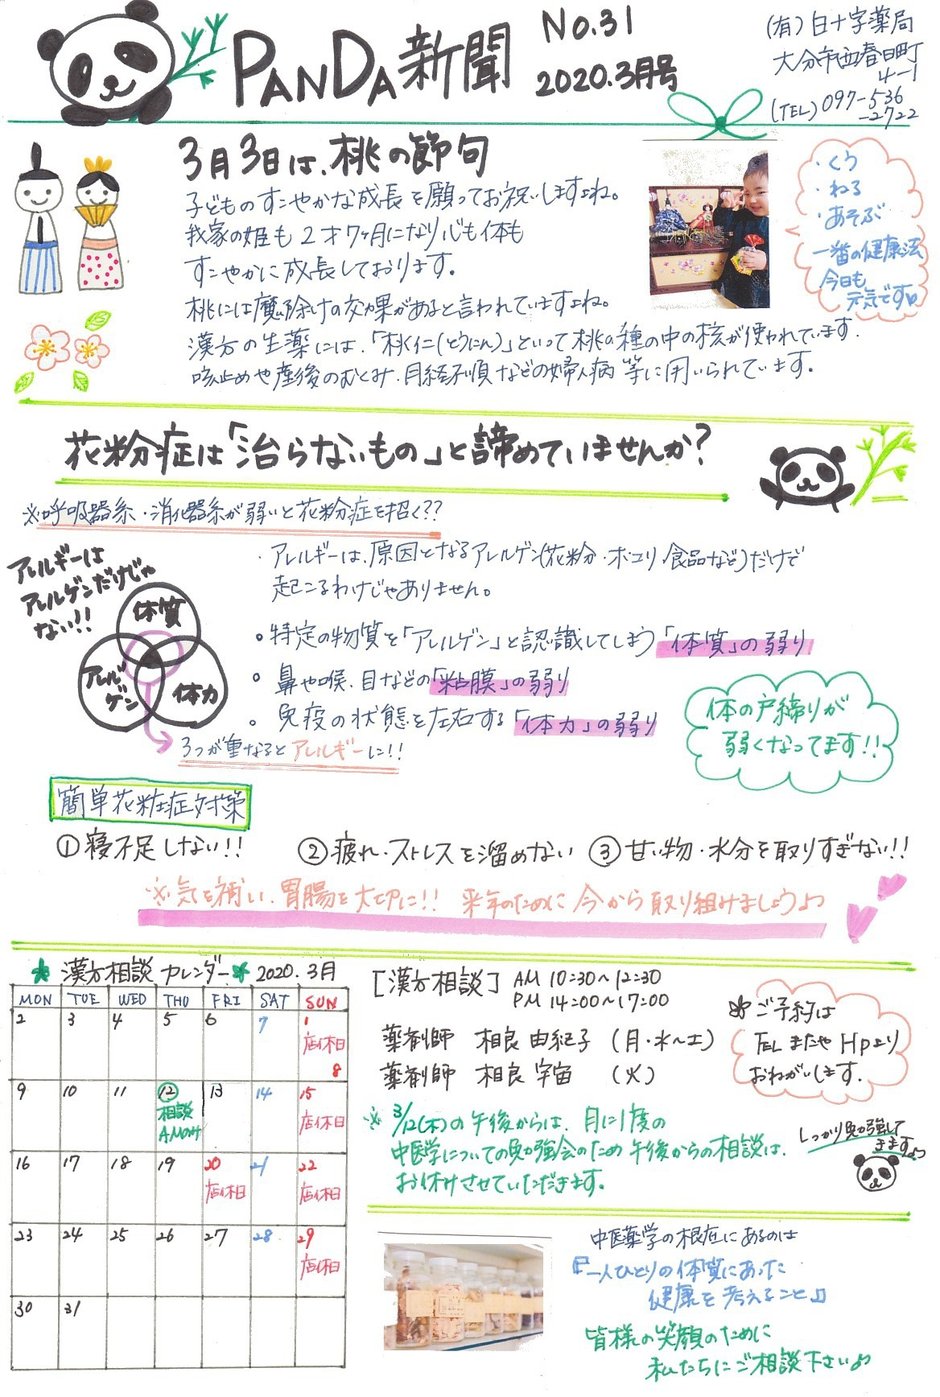 PANDA新聞
No.31
2020.3月号
(有)白十字薬局
大分市西春日町
4-1
(TEL) 097-536
-2722
3月3日は、桃の節句
子どものすこやかな成長を願ってお祝いしますよね。
我家の姫も2才7ヶ月になり心も体も
すこやかに成長しております。
桃には魔除けの効果があると言われていますよね。
漢方の生薬には、「桃仁(とうにん)」といって桃の種の中の核が使われています。
咳止めや産後のむくみ、月経不順などの婦人病等に用いられています。
・くう
・ねる
・あそぶ
一番の健康法
今日も
元気です
花粉症は「治らないもの」と諦めていませんか?
※呼吸器系・消化器系が弱いと花粉症を招く??
アレルギーは
アレルゲンだけじゃ
ない!!
体質
アレルゲン
体力
3つが重なるとアレルギーに!!
・アレルギーは、原因となるアレルゲン(花粉・ホコリ・食品など)だけで
起こるわけじゃありません。
特定の物質を「アレルゲン」と認識してしまう「体質」の弱り
鼻や喉、目などの「粘膜」の弱り
免疫の状態を左右する「体力」の弱り
体の戸締りが
弱くなってます!!
簡単花粉症対策
①寝不足しない!! ②疲れ・ストレスを溜めない ③甘い物・水分を取りすぎない!!
※気を補い、胃腸を大切に!! 来年のために今から取り組みましょう♪
漢方相談カレンダー 2020.3月
MON TUE WED THU FRI SAT SUN
2 3 4 5 6 7 1
店休日
8
9 10 11 12 13 14 15
相談
AMのみ
店休日
16 17 18 19 20 21 22
店休日 店休日
23 24 25 26 27 28 29
店休日
30 31
[漢方相談] AM 10:30~12:30
PM 14:00~17:00
薬剤師 相良 由紀子 (月・水~土)
薬剤師 相良 宇宙 (火)
ご予約は
TELまたはHPより
おねがいします。
※3/12(木)の午後からは、月に1度の
中医学についての勉強会のため午後からの相談は、
お休みさせていただきます。
しっかり勉強して
きます♪
中医薬学の根底にあるのは
『一人ひとりの体質にあった
健康を考えること』
皆様の笑顔のために
私たちにご相談下さい♪